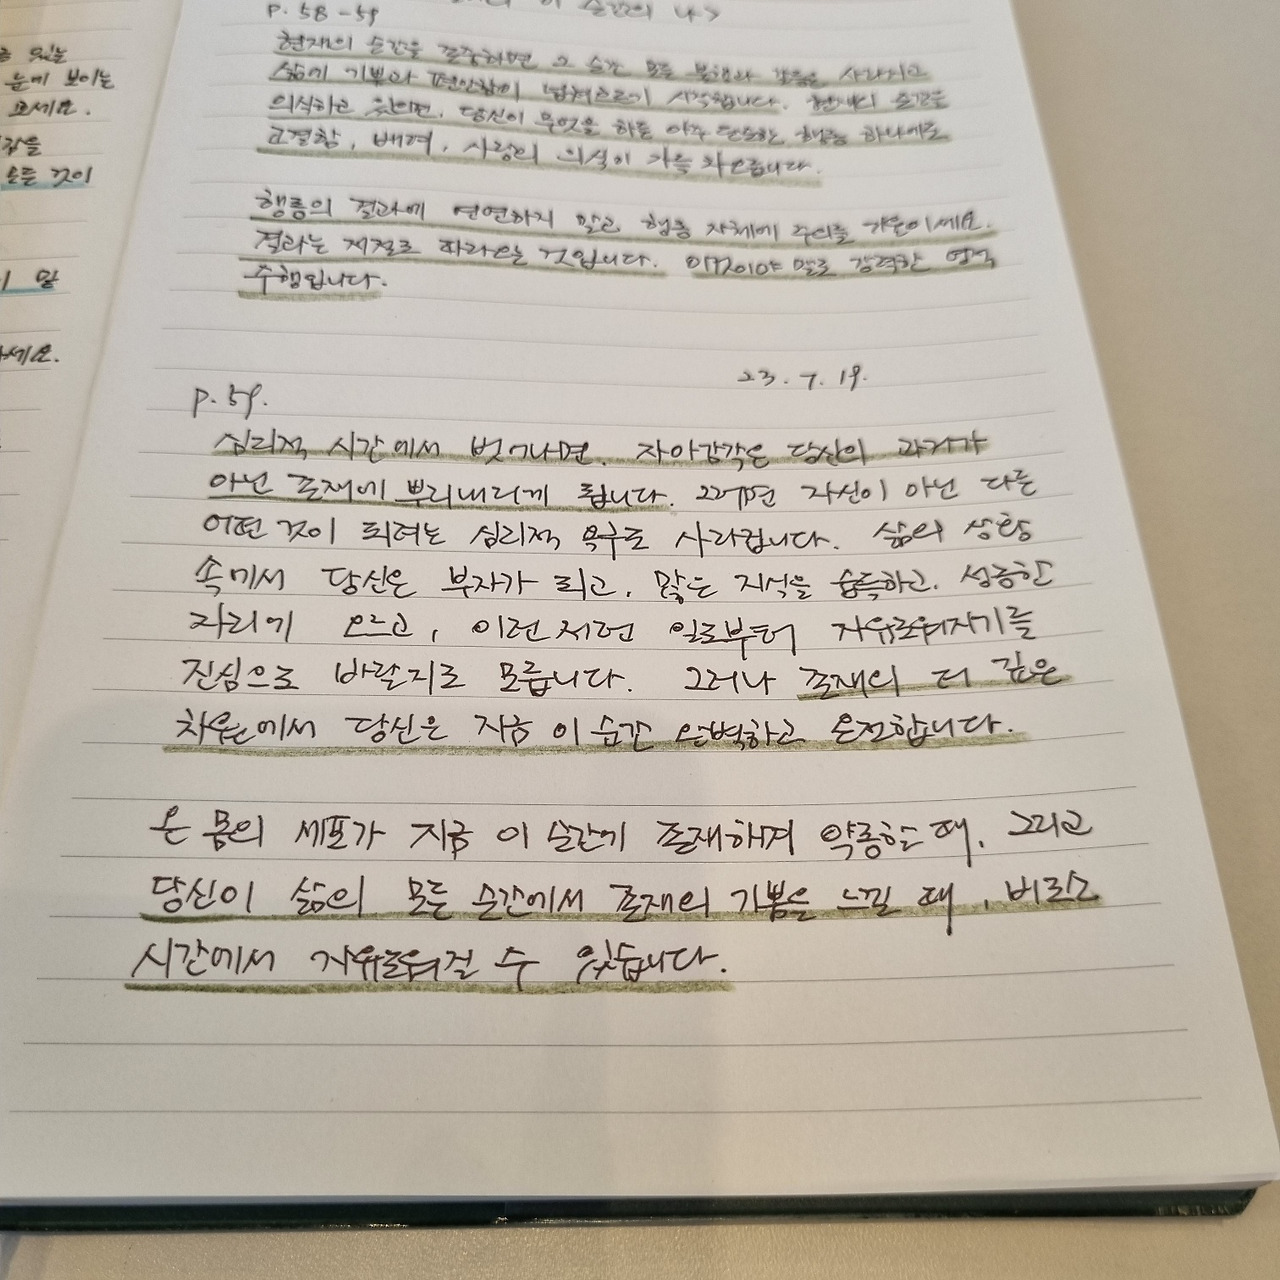 이 순간의 나>
p. 58 - 59
현재의 순간을 존중하면 그 순간 모든 불행과 갈등은 사라지고
삶에 기쁨과 편안함이 넘쳐흐르기 시작합니다. 현재의 순간을
의식하고 있으면, 당신이 무엇을 하든 아주 단순한 행동 하나에도
고결함, 배려, 사랑의 의식이 가득 차오릅니다.
행동의 결과에 연연하지 말고 행동 자체에 주의를 기울이세요.
결과는 저절로 따라오는 것입니다. 이것이야 말로 강력한 영적
수행입니다.
23. 7. 19.
p. 59.
심리적 시간에서 벗어나면, 자아감각은 당신의 과거가
아닌 존재에 뿌리내리게 됩니다. 그러면 자신이 아닌 다른
어떤 것이 되려는 심리적 욕구도 사라집니다. 삶의 상황
속에서 당신은 부자가 되고, 많은 지식을 습득하고, 성공한
자리에 오르고, 이런저런 일로부터 자유로워지기를
진심으로 바랄지도 모릅니다. 그러나 존재의 더 깊은
차원에서 당신은 지금 이 순간 완벽하고 온전합니다.
온 몸의 세포가 지금 이 순간에 존재하며 약동할 때, 그리고
당신이 삶의 모든 순간에서 존재의 기쁨을 느낄 때, 비로소
시간에서 자유로워질 수 있습니다.
눈에 보이는
보세요.
모든 것이
말
세요.